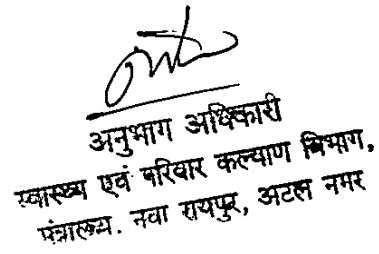 अनुभाग अधिकारी
स्वास्थ्य एवं परिवार कल्याण विभाग,
मंत्रालय. नवा रायपुर, अटल नगर